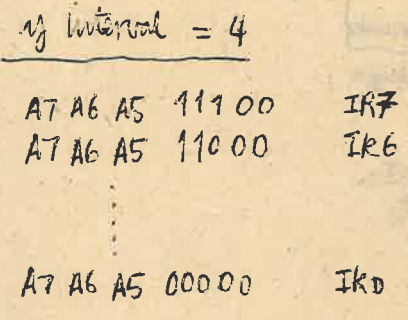 if interval = 4
A7 A6 A5 11100 IR7
A7 A6 A5 11000 IR6
A7 A6 A5 00000 IR0